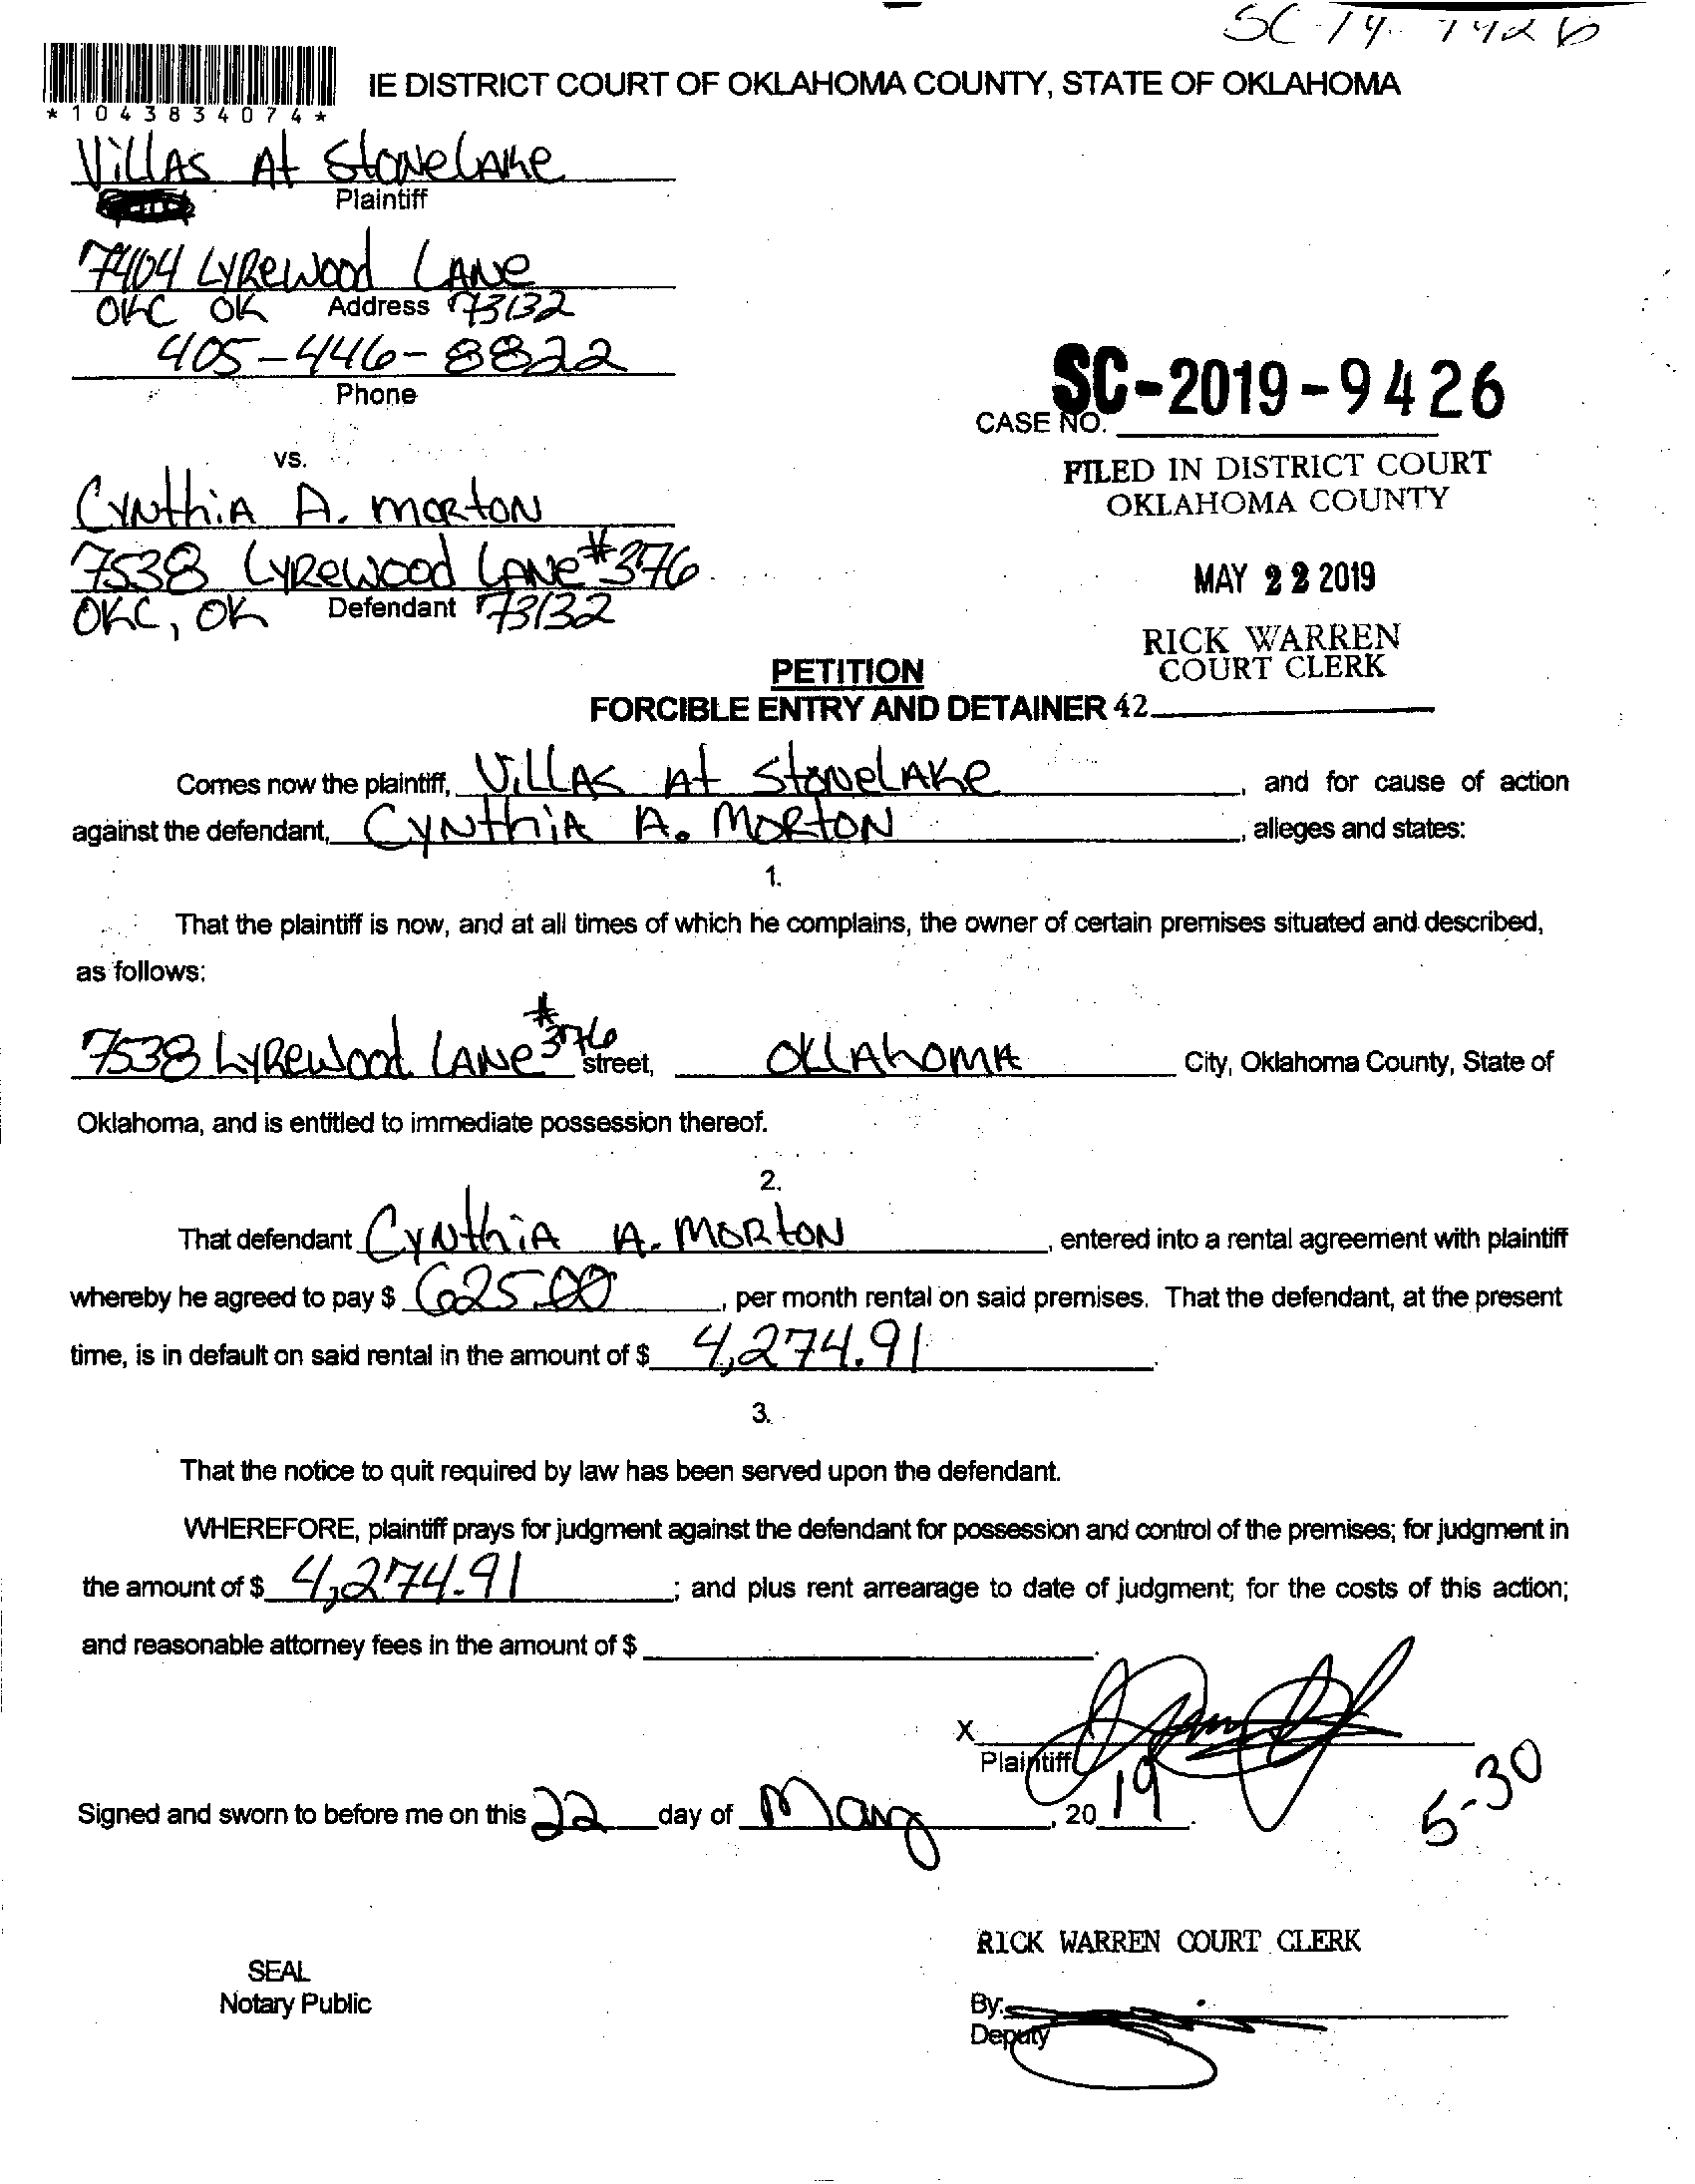 SC-19-9426
*1043834074*
IE DISTRICT COURT OF OKLAHOMA COUNTY, STATE OF OKLAHOMA
Villas At Stonelake
Plaintiff
7404 Lyrewood Lane
OKC OK Address 73132
405-446-8822
Phone
SC-2019-9426
CASE NO.
vs.
FILED IN DISTRICT COURT
OKLAHOMA COUNTY
Cynthia A. Morton
7538 Lyrewood Lane #376
MAY 22 2019
OKC, OK Defendant 73132
RICK WARREN
COURT CLERK
PETITION
FORCIBLE ENTRY AND DETAINER 42
Comes now the plaintiff, Villas At Stonelake, and for cause of action
against the defendant, Cynthia A. Morton, alleges and states:
1.
That the plaintiff is now, and at all times of which he complains, the owner of certain premises situated and described,
as follows:
7538 Lyrewood Lane #376 street, Oklahoma City, Oklahoma County, State of
Oklahoma, and is entitled to immediate possession thereof.
2.
That defendant Cynthia A. Morton, entered into a rental agreement with plaintiff
whereby he agreed to pay $ 625.00, per month rental on said premises. That the defendant, at the present
time, is in default on said rental in the amount of $ 4,274.91.
3.
That the notice to quit required by law has been served upon the defendant.
WHEREFORE, plaintiff prays for judgment against the defendant for possession and control of the premises; for judgment in
the amount of $ 4,274.91; and plus rent arrearage to date of judgment; for the costs of this action;
and reasonable attorney fees in the amount of $.
X
Plaintiff
Signed and sworn to before me on this 22 day of May, 20 19.
5-30
RICK WARREN COURT CLERK
SEAL
Notary Public
By:
Deputy